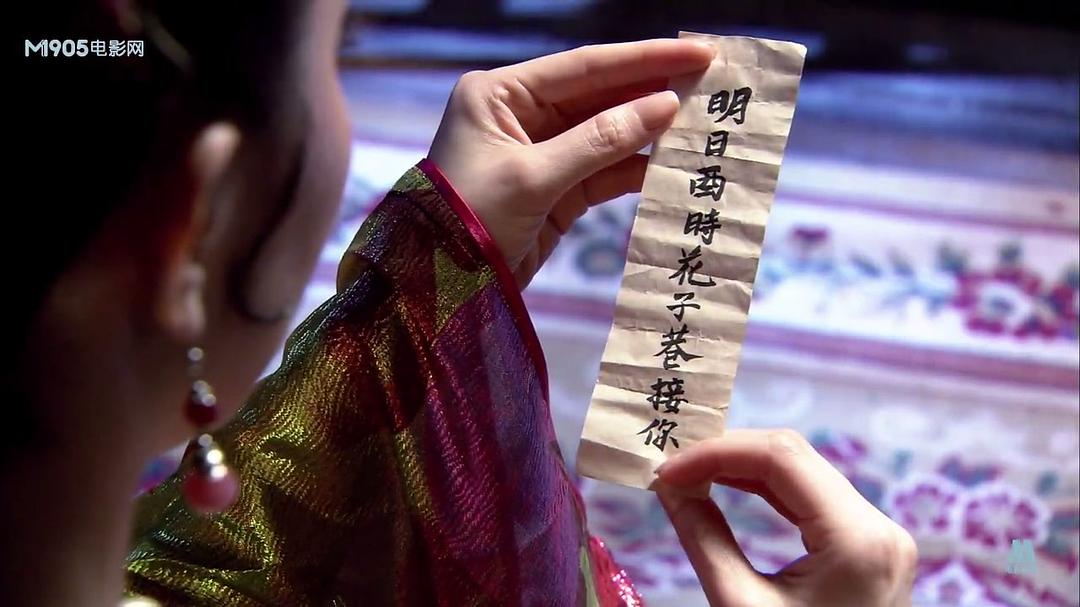 M1905电影网
明日酉時花子巷接你